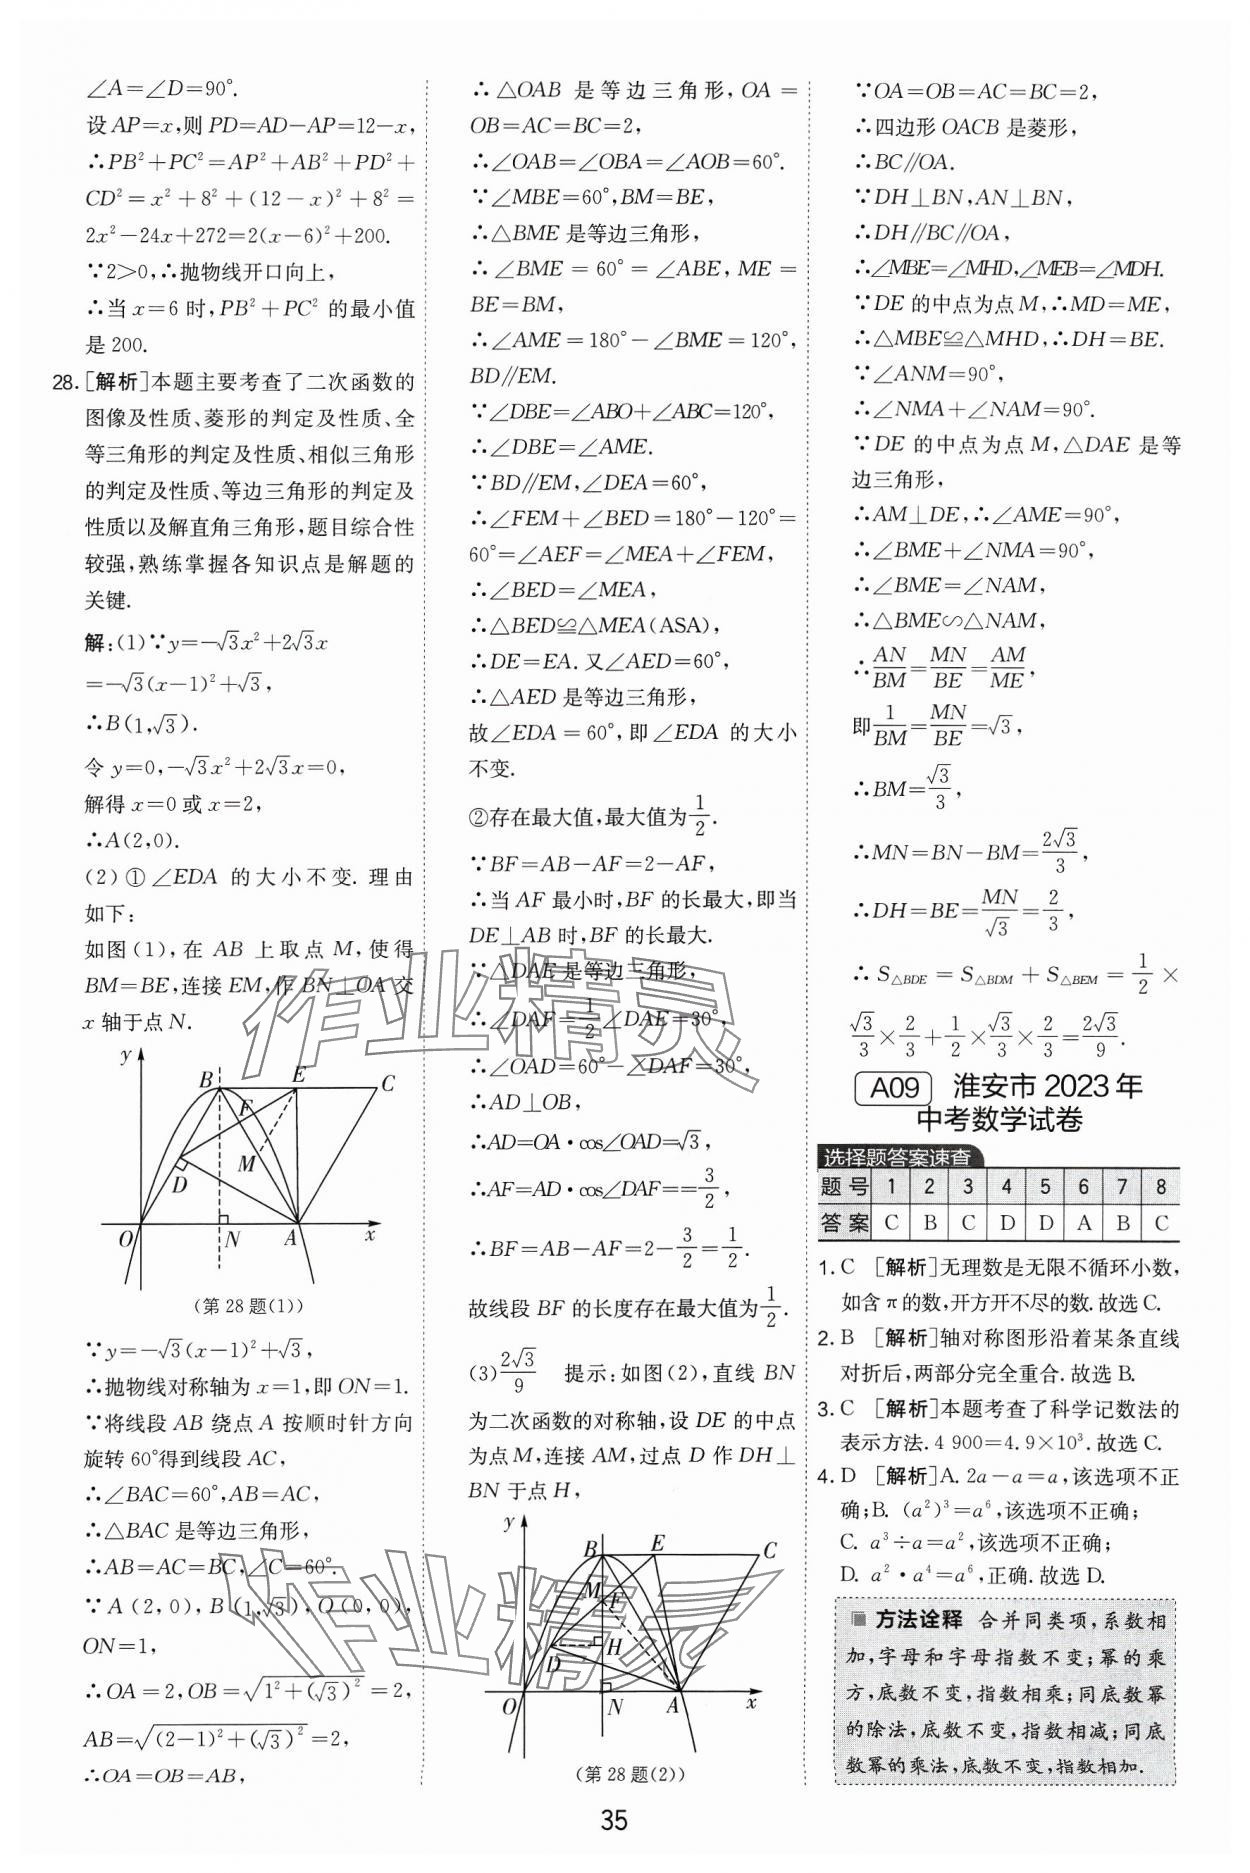 ∠A=∠D=90°.
设AP=x,则PD=AD-AP=12-x,
∴PB²+PC²=AP²+AB²+PD²+
CD²=x²+8²+(12-x)²+8²=
2x²-24x+272=2(x-6)²+200.
∵2>0,∴抛物线开口向上,
∴当x=6时,PB²+PC²的最小值
是200.
28.[解析]本题主要考查了二次函数的
图像及性质、菱形的判定及性质、全
等三角形的判定及性质、相似三角形
的判定及性质、等边三角形的判定及
性质以及解直角三角形,题目综合性
较强,熟练掌握各知识点是解题的
关键.
解:(1)∵y=-√3x²+2√3x
=-√3(x-1)²+√3,
∴B(1,√3).
令y=0,-√3x²+2√3x=0,
解得x=0或x=2,
∴A(2,0).
(2)①∠EDA的大小不变.理由
如下:
如图(1),在AB上取点M,使得
BM=BE,连接EM,作BN⊥OA交
x轴于点N.
y B E C
F
M
D
O N A x
(第28题(1))
∵y=-√3(x-1)²+√3,
∴抛物线对称轴为x=1,即ON=1.
∵将线段AB绕点A按顺时针方向
旋转60°得到线段AC,
∴∠BAC=60°,AB=AC,
∴△BAC是等边三角形,
∴AB=AC=BC,∠C=60°.
∵A(2,0),B(1,√3),O(0,0),
ON=1,
∴OA=2,OB=√(1²+(√3)²)=2,
AB=√((2-1)²+(√3)²)=2,
∴OA=OB=AB,
∴△OAB是等边三角形,OA=
OB=AC=BC=2,
∴∠OAB=∠OBA=∠AOB=60°.
∵∠MBE=60°,BM=BE,
∴△BME是等边三角形,
∴∠BME=60°=∠ABE,ME=
BE=BM,
∴∠AME=180°-∠BME=120°,
BD∥EM.
∵∠DBE=∠ABO+∠ABC=120°,
∴∠DBE=∠AME.
∵BD∥EM,∠DEA=60°,
∴∠FEM+∠BED=180°-120°=
60°=∠AEF=∠MEA+∠FEM,
∴∠BED=∠MEA,
∴△BED≌△MEA(ASA),
∴DE=EA.又∠AED=60°,
∴△AED是等边三角形,
故∠EDA=60°,即∠EDA的大小
不变.
②存在最大值,最大值为1/2.
∵BF=AB-AF=2-AF,
∴当AF最小时,BF的长最大,即当
DE⊥AB时,BF的长最大.
∵△DAE是等边三角形,
∴∠DAF=1/2∠DAE=30°,
∴∠OAD=60°-∠DAF=30°,
∴AD⊥OB,
∴AD=OA·cos∠OAD=√3,
∴AF=AD·cos∠DAF==3/2,
∴BF=AB-AF=2-3/2=1/2.
故线段BF的长度存在最大值为1/2.
(3)2√3/9 提示:如图(2),直线BN
为二次函数的对称轴,设DE的中点
为点M,连接AM,过点D作DH⊥
BN于点H,
y B E C
M
F
H
D
O N A x
(第28题(2))
∵OA=OB=AC=BC=2,
∴四边形OACB是菱形,
∴BC∥OA.
∵DH⊥BN,AN⊥BN,
∴DH∥BC∥OA,
∴∠MBE=∠MHD,∠MEB=∠MDH.
∵DE的中点为点M,∴MD=ME,
∴△MBE≌△MHD,∴DH=BE.
∵∠ANM=90°,
∴∠NMA+∠NAM=90°.
∵DE的中点为点M,△DAE是等
边三角形,
∴AM⊥DE,∴∠AME=90°,
∴∠BME+∠NMA=90°,
∴∠BME=∠NAM,
∴△BME∽△NAM,
∴AN/BM=MN/BE=AM/ME,
即1/BM=MN/BE=√3,
∴BM=√3/3,
∴MN=BN-BM=2√3/3,
∴DH=BE=MN/√3=2/3,
∴S△BDE=S△BDM+S△BEM=1/2×
√3/3×2/3+1/2×√3/3×2/3=2√3/9.
A09 淮安市2023年
中考数学试卷
选择题答案速查
题号 1 2 3 4 5 6 7 8
答案 C B C D D A B C
1.C [解析]无理数是无限不循环小数,
如含π的数,开方开不尽的数.故选C.
2.B [解析]轴对称图形沿着某条直线
对折后,两部分完全重合.故选B.
3.C [解析]本题考查了科学记数法的
表示方法.4 900=4.9×10³.故选C.
4.D [解析]A.2a-a=a,该选项不正
确;B.(a²)³=a⁶,该选项不正确;
C.a³÷a=a²,该选项不正确;
D.a²·a⁴=a⁶,正确.故选D.
方法诠释 合并同类项,系数相
加,字母和字母指数不变;幂的乘
方,底数不变,指数相乘;同底数幂
的除法,底数不变,指数相减;同底
数幂的乘法,底数不变,指数相加.
35
作业精灵
作业精灵